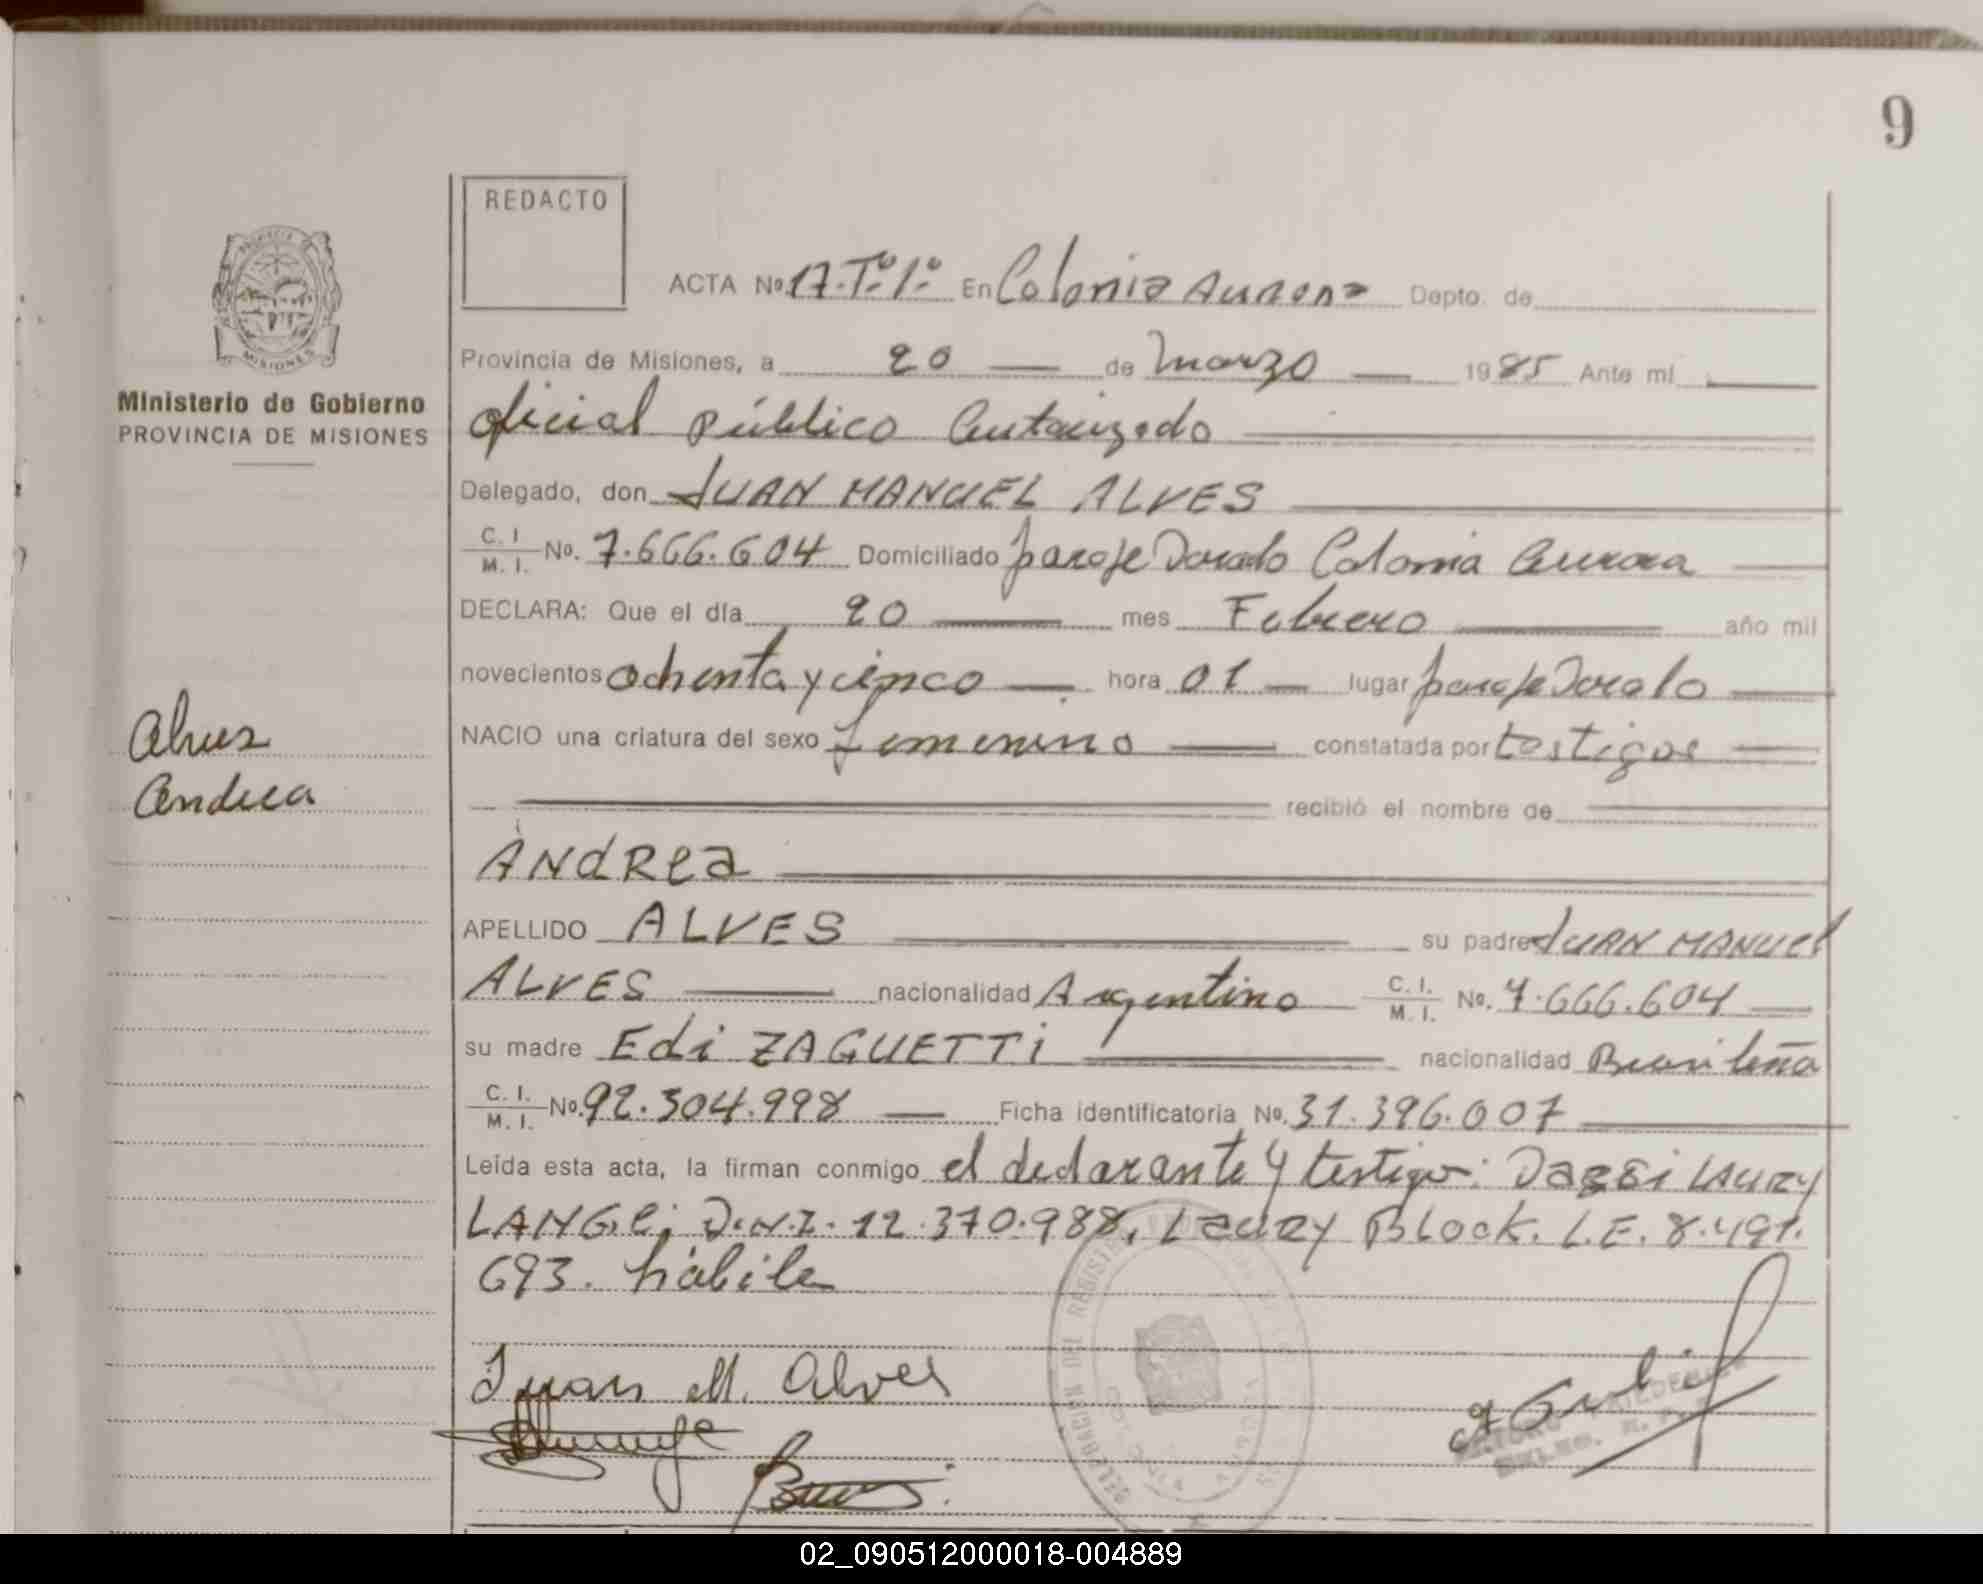 9
REDACTO
ACTA No. 17. Tº. 1º. En Colonia Aurora Depto. de
Provincia de Misiones, a 20 de Marzo 1985 Ante mí
oficial público Autorizado
Ministerio de Gobierno
PROVINCIA DE MISIONES
Delegado, don JUAN MANUEL ALVES
C. I. / M. I. No. 7.666.604 Domiciliado paraje Dorado Colonia Aurora
DECLARA: Que el día 20 mes Febrero año mil
novecientos ochenta y cinco hora 01 lugar paraje Dorado
NACIO una criatura del sexo femenino constatada por testigos
recibió el nombre de
Alves
Andrea
ANdRea
APELLIDO ALVES su padre JUAN MANUEL
ALVES nacionalidad Argentino C. I. / M. I. No. 7.666.604
su madre Edi ZAGUETTi nacionalidad Brasileña
C. I. / M. I. No. 92.304.998 Ficha identificatoria No. 31.396.007
Leída esta acta, la firman conmigo el declarante y testigo: LAURY
LANGE; D.N.I. 12.370.988, Laury Block. L.E. 8.491.
693. hábiles
Juan M. Alves
MISIONES
DELEGACION DEL REGISTRO
02_090512000018-004889